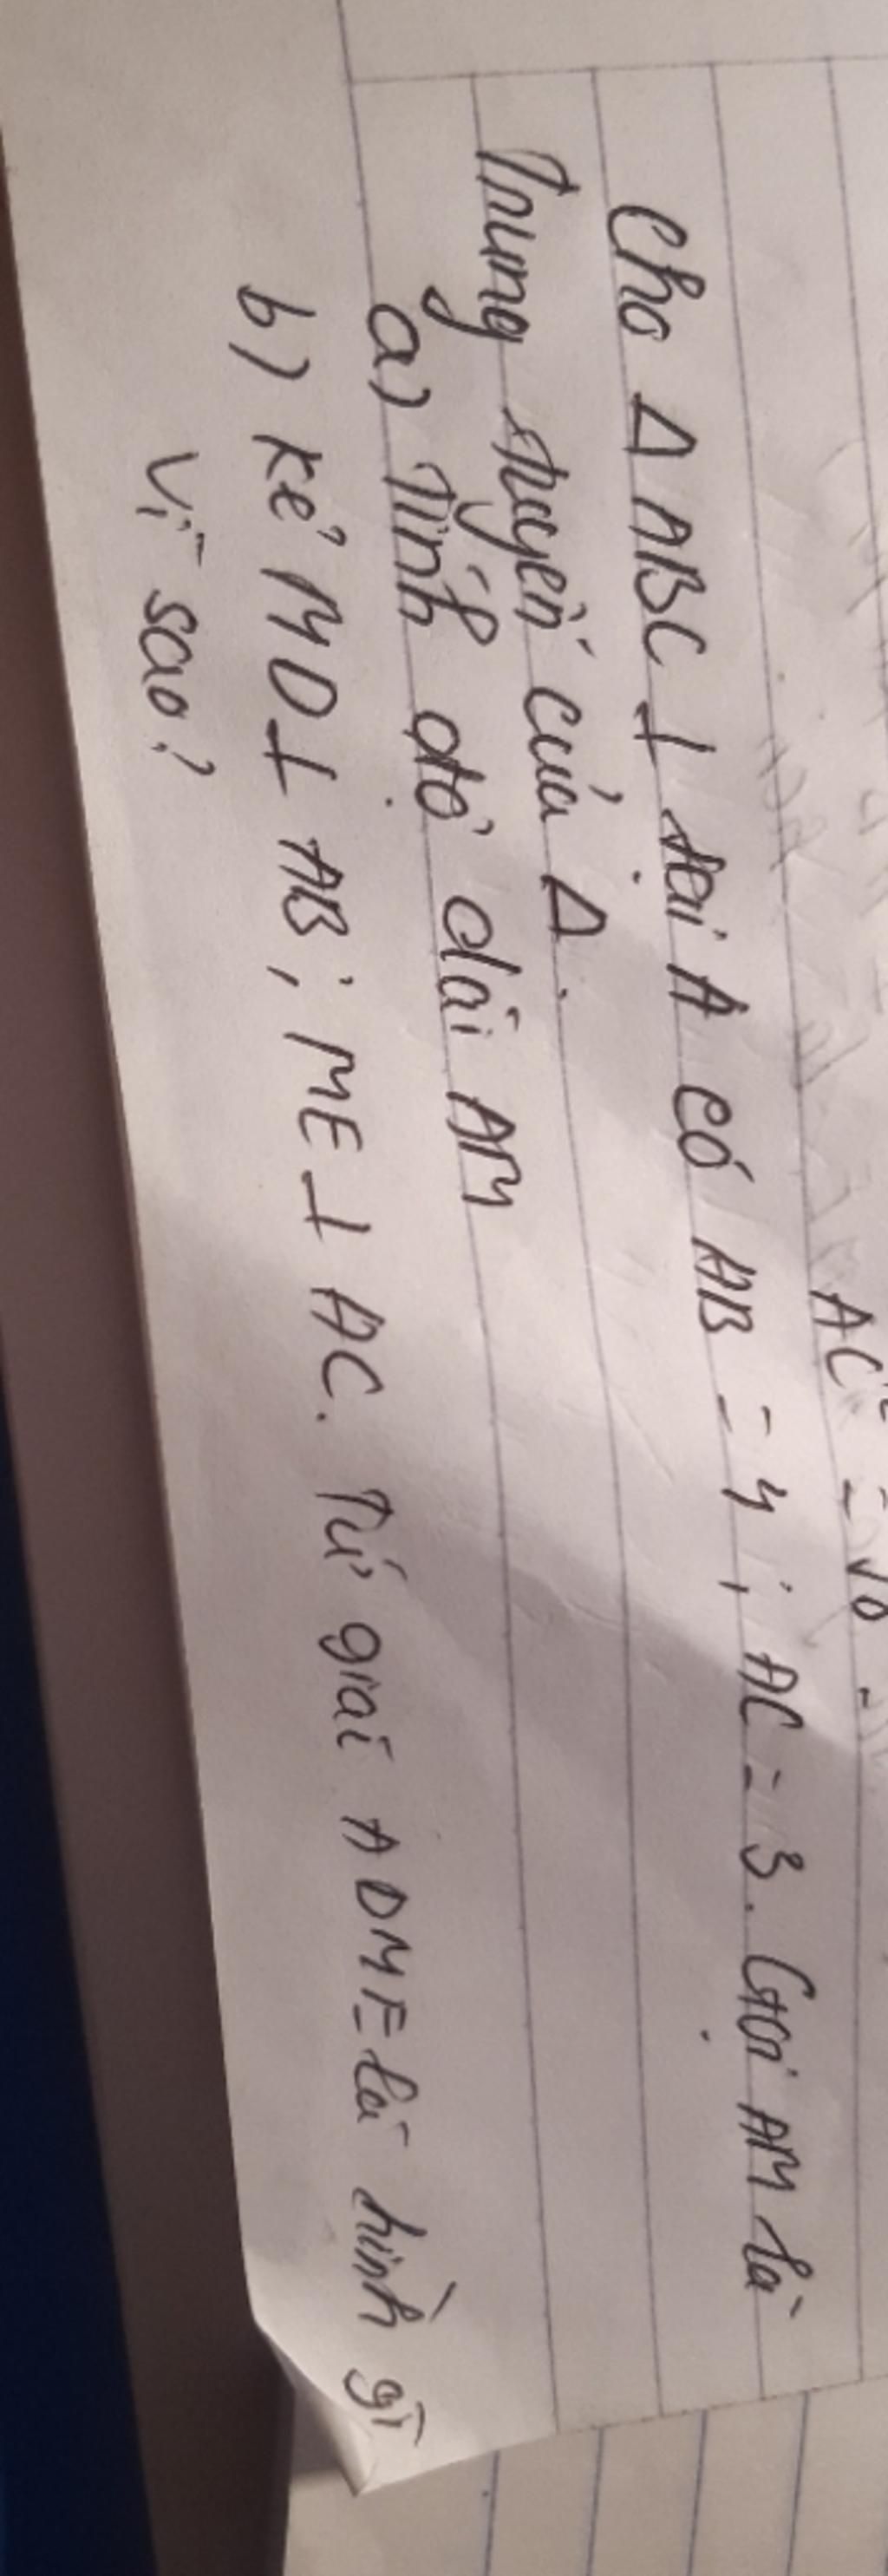 AC² = 
Cho Δ ABC ⊥ tại A có AB = 4 ; AC = 3. Gọi AM là
Trung tuyến của Δ.
a) Tính độ dài AM
b) Kẻ MD ⊥ AB ; ME ⊥ AC. Tứ giác ADME là hình gì
Vì sao?